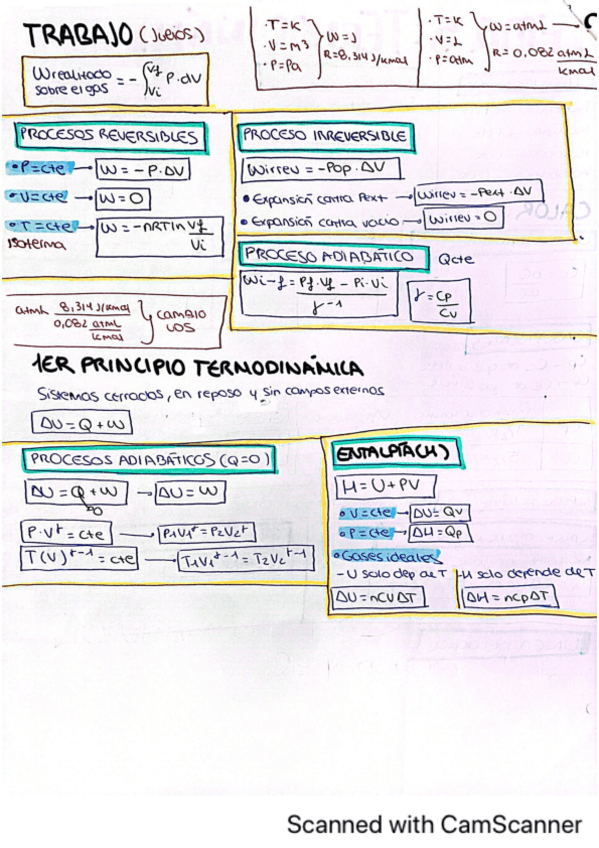 TRABAJO (Julios)
W realizado sobre el gas = - ∫Vi Vf P·dV
· T = K
· V = m³
· P = Pa
W = J
R = 8,314 J/Kmol
· T = K
· V = L
· P = atm
W = atmL
R = 0,082 atmL/Kmol
PROCESOS REVERSIBLES
• P = cte → W = -P·ΔV
• V = cte → W = 0
• T = cte → W = -nRT ln Vf/Vi
Isoterma
PROCESO IRREVERSIBLE
Wirrev = -Pop·ΔV
• Expansión contra Pext → Wirrev = -Pext·ΔV
• Expansión contra vacío → Wirrev = 0
PROCESO ADIABÁTICO Qcte
Wi-f = Pf·Vf - Pi·Vi / γ-1
γ = Cp/Cv
8,314 J/Kmol
0,082 atmL/Kmol
CAMBIO
1ER PRINCIPIO TERMODINÁMICA
Sistemas cerrados, en reposo y sin campos externos
ΔU = Q + W
PROCESOS ADIABÁTICOS (Q=0)
ΔU = Q + W → ΔU = W
0
P·V^γ = cte → P1V1^γ = P2V2^γ
T(V)^γ-1 = cte → T1V1^γ-1 = T2V2^γ-1
ENTALPÍA (H)
H = U + PV
• V = cte → ΔU = Qv
• P = cte → ΔH = Qp
• Gases ideales
- U solo dep de T
- H solo depende de T
ΔU = nCvΔT
ΔH = nCpΔT
Scanned with CamScanner